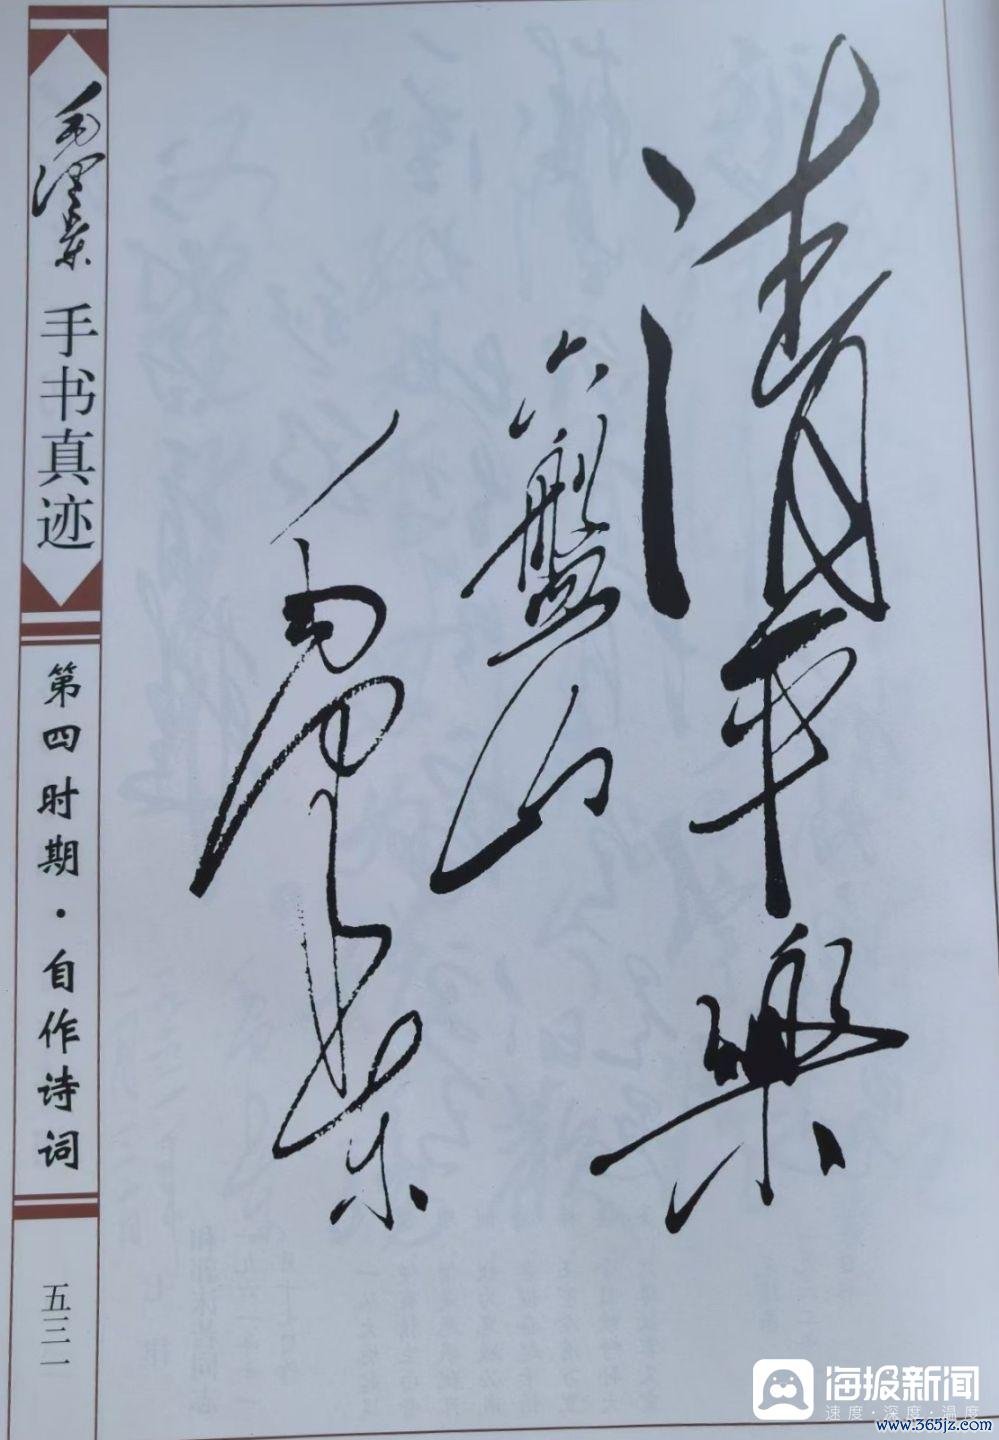 清平樂
六盤山
毛澤東
毛澤東
手书真迹
第四时期·自作诗词
五三一
海报新闻
速度·深度·温度
www.365jz.com